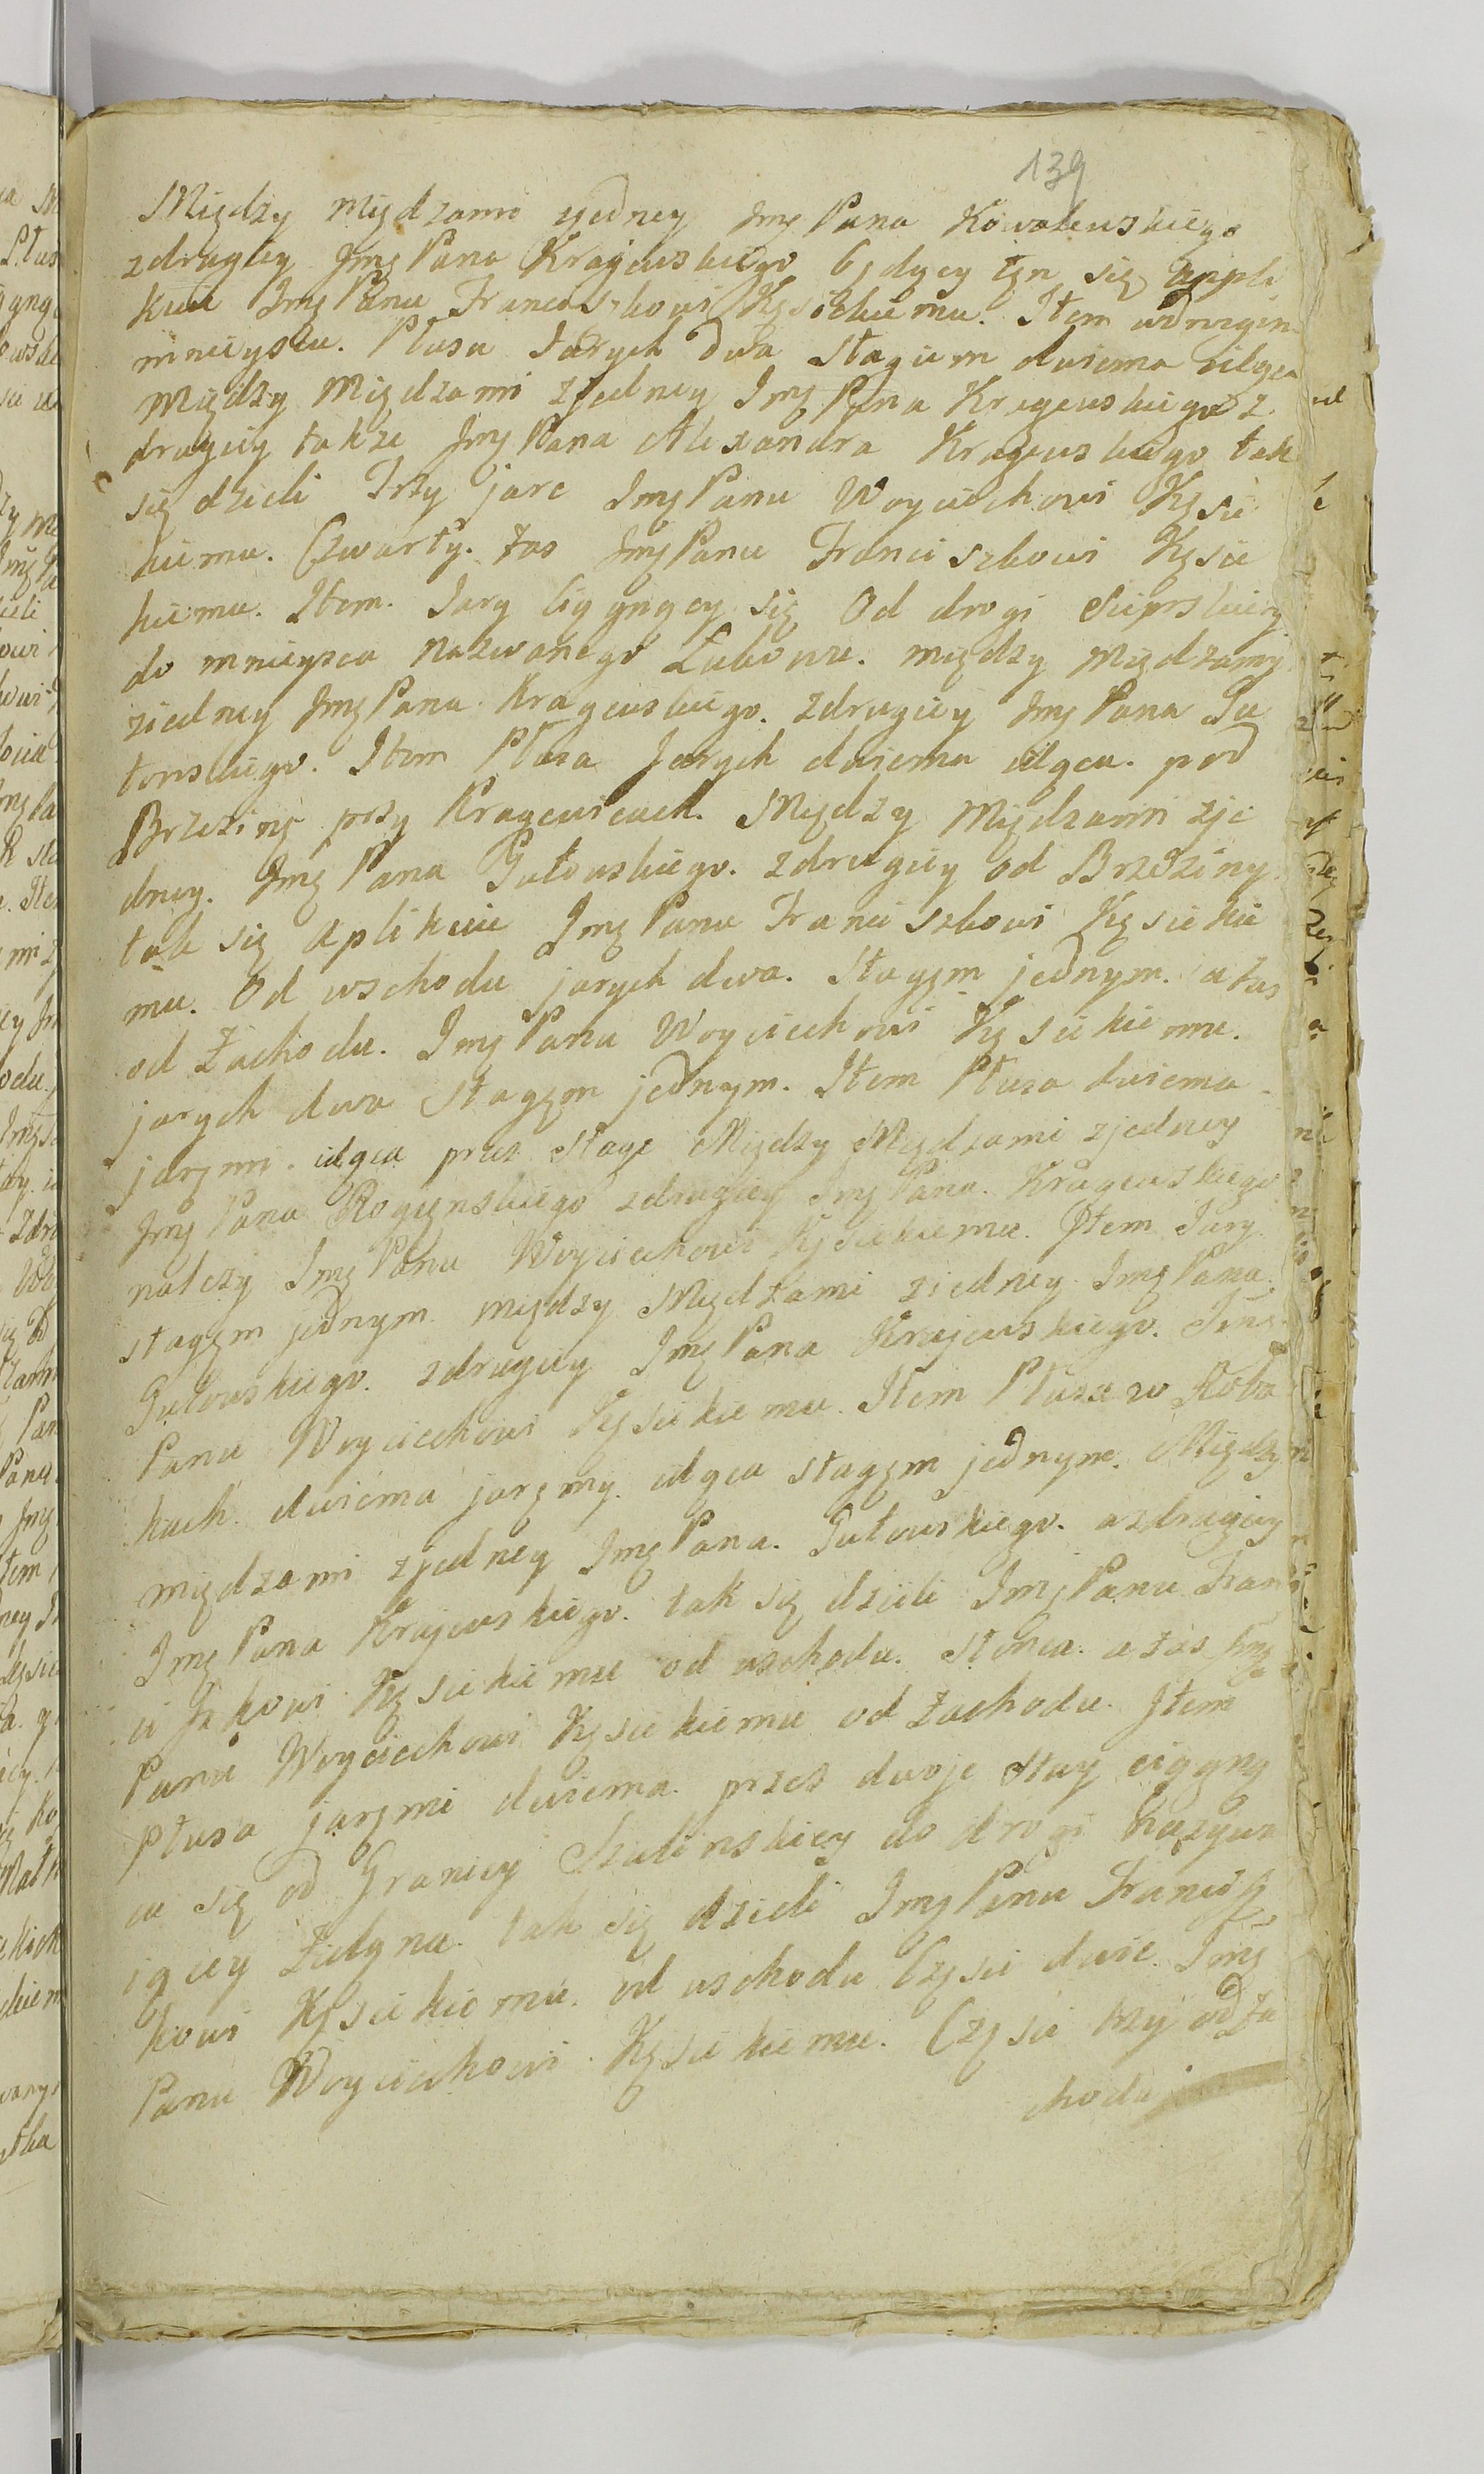 139
Między Międzami zjedney Jmę Pana Kowalewskiego
zdrugiey Jmę Pana Kragewskiego będący ten się appli
kuie Jmę Panu Franciszkowi Kęsickiemu. Item
mnieyscu. Płusa Jarych dwa stagiem dwiema
Między Międzami zjedney Jmę Pana Kragewskiego z
drugiey takze Jmę Pana Alexandra Kragewskiego tak
się dzieli Trzy jarc Jmę Panu Woyciechowi Kęsic
kiemu. Czwarty. zas Jmę Panu Franciszkowi Kęsic
kiemu. Item. Jary ciągnący się Od drogi
do mnieysca nazwanego Łubowu. między Międzamy
ziedney Jmę Pana Kragewskiego. zdrugiey Jmę Pana Gu
towskiego. Item Płusa Jarych dwiema idąca. pod
Brzezinę przy Kragewicach. Między Międzami zje
dney. Jmę Pana Gutowskiego. zdrugiey od Brzeziny
tak się aplikuie Jmę Panu Franciszkowi Kęsickie
mu. Od wschodu jarych dwa. stagęm jednym. a zas
od Zachodu. Jmę Panu Woyciechowi Kęsickiemu.
jarych dwa stagęm jednym. Item Płusa dwiema
jarzmi. idąca przez stage Między Międzami zjedney
Jmę Pana Rogenskiego zdrugiey Jmę Pana. Kragewskiego
nalezy Jmę Panu Woyciechowi Kęsickiemu. Item Jary
stagęm jednym między Międzami ziedney Jmę Pana
Gutowskiego. zdrugiey Jmę Pana Krajewskiego. Jmę
Panu Woyciechowi Kęsickiemu. Item Płusa w
kach. dwiema jarzmy. idąca stagęm jednym. Między
międzami zjedney Jmę Pana. Gutowskiego. a zdrugiey
Jmę Pana Krajewskiego. tak się dzieli Jmę Panu Fran
ciszkowi Kęsickiemu od wschodu. słonca. a zas Jmę
Panu Woyciechowi Kęsickiemu od Zachodu. Item
Płusa jarzmi dwiema. przez dwoje stay ciągną
ca się od Granicy do drogi nazywa
iącey tak się dzieli Jmę Panu Francisz
kowi Kęsickiemu. od wschodu Częsci dwie. Jmę
Panu Woyciechowi. Kęsickiemu. Częsci trzy od Za
chodu